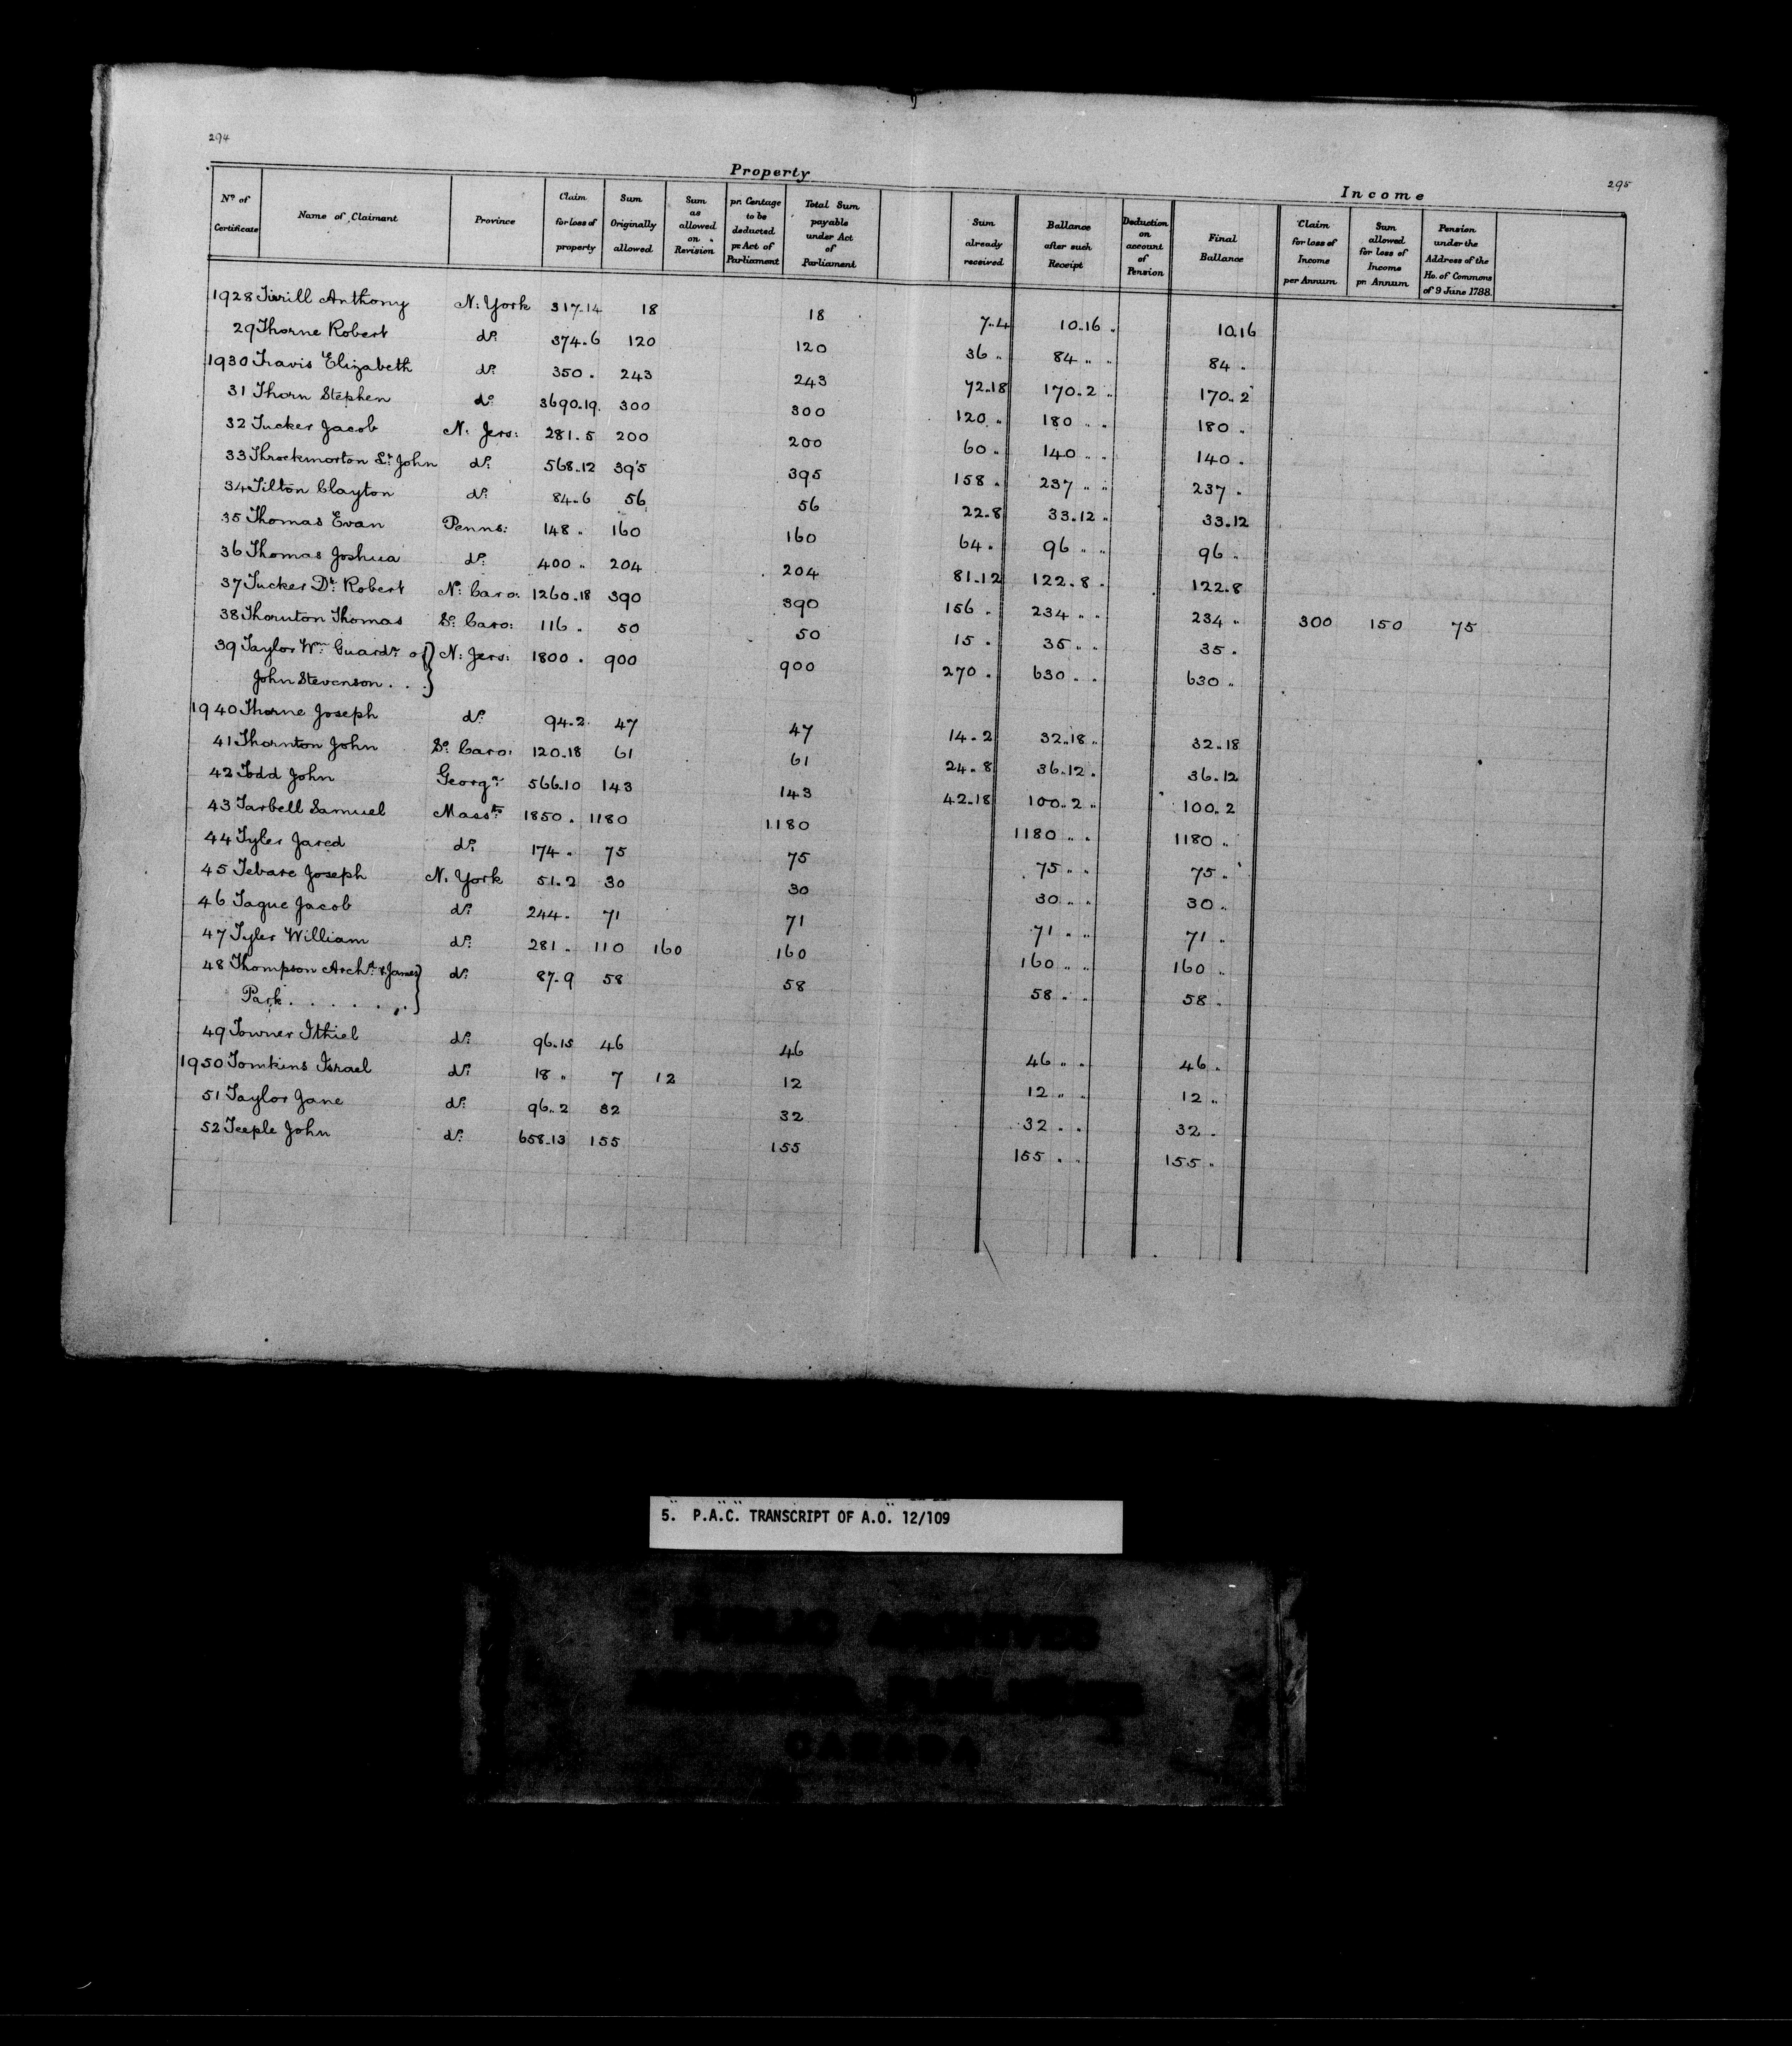 294
295
Property
Income
No. of Certificate | Name of Claimant | Province | Claim for loss of property | Sum Originally allowed | Sum as allowed on Revision | pr. Centage to be deducted pr. Act of Parliament | Total Sum payable under Act of Parliament | Sum already received | Ballance after such Receipt | Deduction on account of Pension | Final Ballance | Claim for loss of Income per Annum | Sum allowed for loss of Income pr Annum | Pension under the Address of the Ho. of Commons of 9 June 1788.
1928 Tirrill Anthony N: York 317..14 18 18 7..4 10..16 „ 10.16
29 Thorne Robert do. 374..6 120 120 36 „ 84 „ „ 84 „
1930 Travis Elizabeth do. 350 „ 243 243 72..18 170..2 „ 170..2
31 Thorn Stephen do. 3690..19. 300 300 120 „ 180 „ „ 180 „
32 Tucker Jacob N: Jers: 281..5 200 200 60 „ 140 „ „ 140 „
33 Throckmorton St. John do. 568..12 395 395 158 „ 237 „ „ 237 „
34 Tilton Clayton do. 84..6 56 56 22..8 33..12 „ 33..12
35 Thomas Evan Penns: 148 „ 160 160 64 „ 96 „ „ 96 „
36 Thomas Joshua do. 400 „ 204 204 81..12 122..8 „ 122..8
37 Tucker Dr. Robert No. Caro: 1260..18 390 390 156 „ 234 „ „ 234 „ 300 150 75
38 Thornton Thomas So. Caro: 116 „ 50 50 15 „ 35 „ „ 35 „
39 Taylor Wm. Guardn. of } N: Jers: 1800 „ 900 900 270 „ 630 „ „ 630 „
John Stevenson . . }
1940 Thorne Joseph do. 94..2 47 47 14..2 32..18 „ 32..18
41 Thornton John So. Caro: 120..18 61 61 24..8 36..12 „ 36..12
42 Todd John Georga. 566..10 143 143 42..18 100..2 „ 100..2
43 Tarbell Samuel Massts. 1850 „ 1180 1180 1180 „ „ 1180 „
44 Tyler Jared do. 174 „ 75 75 75 „ „ 75 „
45 Tebare Joseph N. York 51..2 30 30 30 „ „ 30 „
46 Tague Jacob do. 244 „ 71 71 71 „ „ 71 „
47 Tyler William do. 281 „ 110 160 160 160 „ „ 160 „
48 Thompson Archd. & James } do. 87..9 58 58 58 „ „ 58 „
Park . . . . . . }
49 Towner Ithiel do. 96..15 46 46 46 „ „ 46 „
1950 Tomkins Israel do. 18 „ 7 12 12 12 „ „ 12 „
51 Taylor Jane do. 96..2 32 32 32 „ „ 32 „
52 Teeple John do. 658..13 155 155 155 „ „ 155 „
5. P.A.C. TRANSCRIPT OF A.O. 12/109
PUBLIC ARCHIVES
CANADA